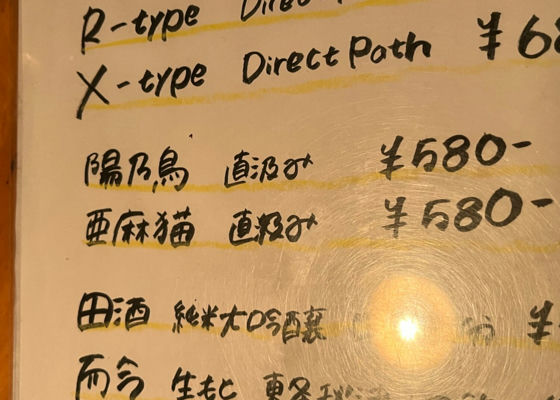 R-type Direct
X-type Direct Path ¥68
陽乃鳥 直汲み ¥580-
亜麻猫 直汲み ¥580-
田酒 純米大吟醸 ¥
而今 生もと